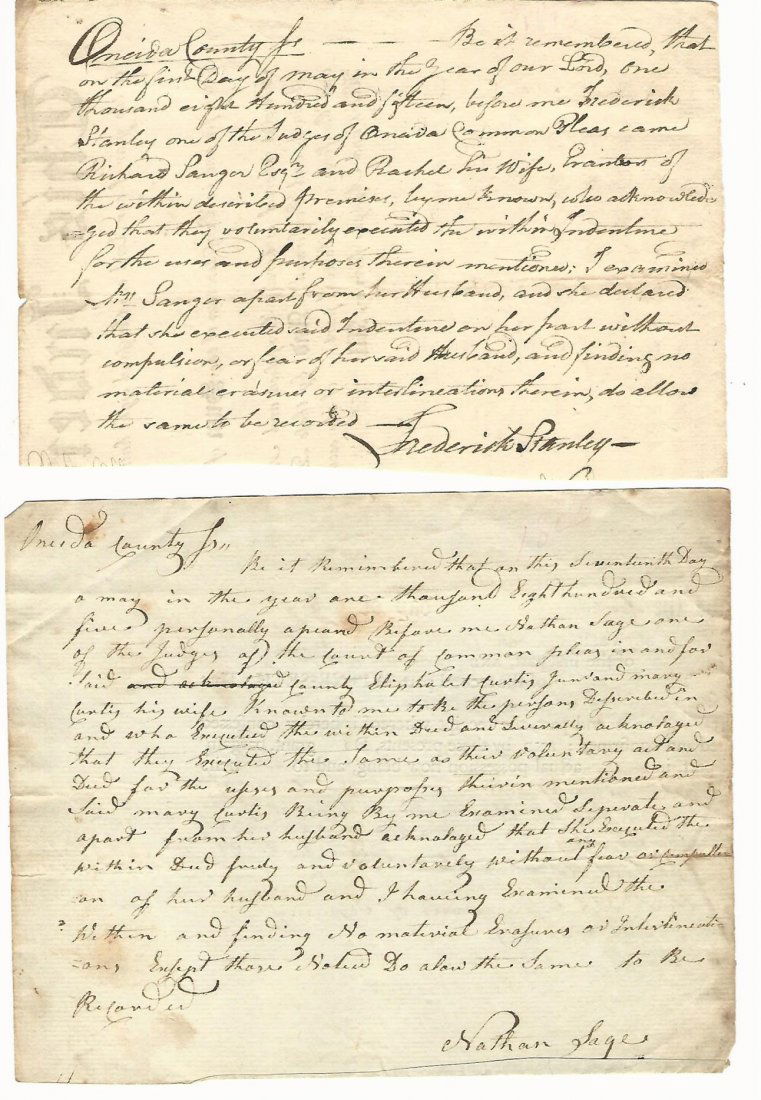 Oneida County ss — — — Be it remembered, that
on the first Day of may in the Year of our Lord, One
thousand eight Hundred and fifteen, before me Frederick
Stanley one of the Judges of Oneida Common Pleas came
Richard Sanger Esqr. and Rachel his Wife, Grantors of
the within described Premises, by me known, who acknowled-
=ged that they voluntarily executed the within Indenture
for the uses and purposes therein mentioned; I examined
Mrs Sanger apart from her Husband, and she declared
that she executed said Indenture on her part without
compulsion, or fear of her said Husband, and finding no
material erasures or interlineations therein, do allow
the same to be recorded — Frederick Stanley —
Oneida County ss,,
Be it Remembered that on this Seventeenth Day
a may in the year one thousand Eight hundred and
five personally apeard Before me Nathan Sage one
of the Judges of the Court of Common pleas in and for
said and acknolaged County Eliphalet Curtis Junr and mary
Curtis his wife Known to me to Be the persons Described in
and who Executed the within Deed and Severally acknolaged
that they Executed the Same as their voluntary act and
Deed for the uses and purposses theirin mentioned and
Said mary Curtis Being By me Examined Seperate and
apart from her husband acknolaged that She Executed the
within Deed freely and voluntarely without any fear or compulti
on of her husband and I haveing Examined the
Within and finding No material Erasures or Interlineati-
=ons Except those Noted Do alow the Same to Be
Recorded
Nathan Sage